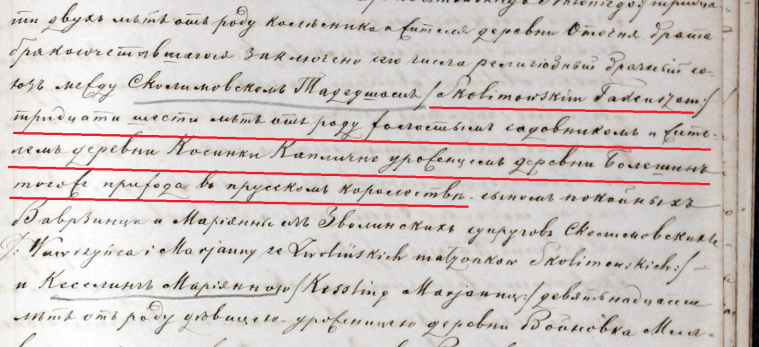 ти двухъ лѣтъ отъ роду колесника и жителя деревни брата
бракосочетавшагося заключенъ сего числа религіозный брачный со-
юзъ между Сколимовскомъ Тадеушомъ /:Skolimowskim Tadeuszem:/
тридцати шести лѣтъ отъ роду холостымъ садовникомъ и жите-
лемъ деревни Косинки Капличне уроженцемъ деревни Болешинъ
тогожъ прихода въ прусскомъ королествѣ сыномъ покойныхъ
Вавржинца и Маріянны изъ Зволинскихъ супруговъ Сколимовскихъ
/: Wawrzyńca i Marjanny ze Zwolińskich małżonków Skolimowskich:/ –
и Кесслингъ Маріянною /:Kessling Marjanną:/ девятьнадцати
лѣтъ отъ роду дѣвицею уроженицею деревни Войновка